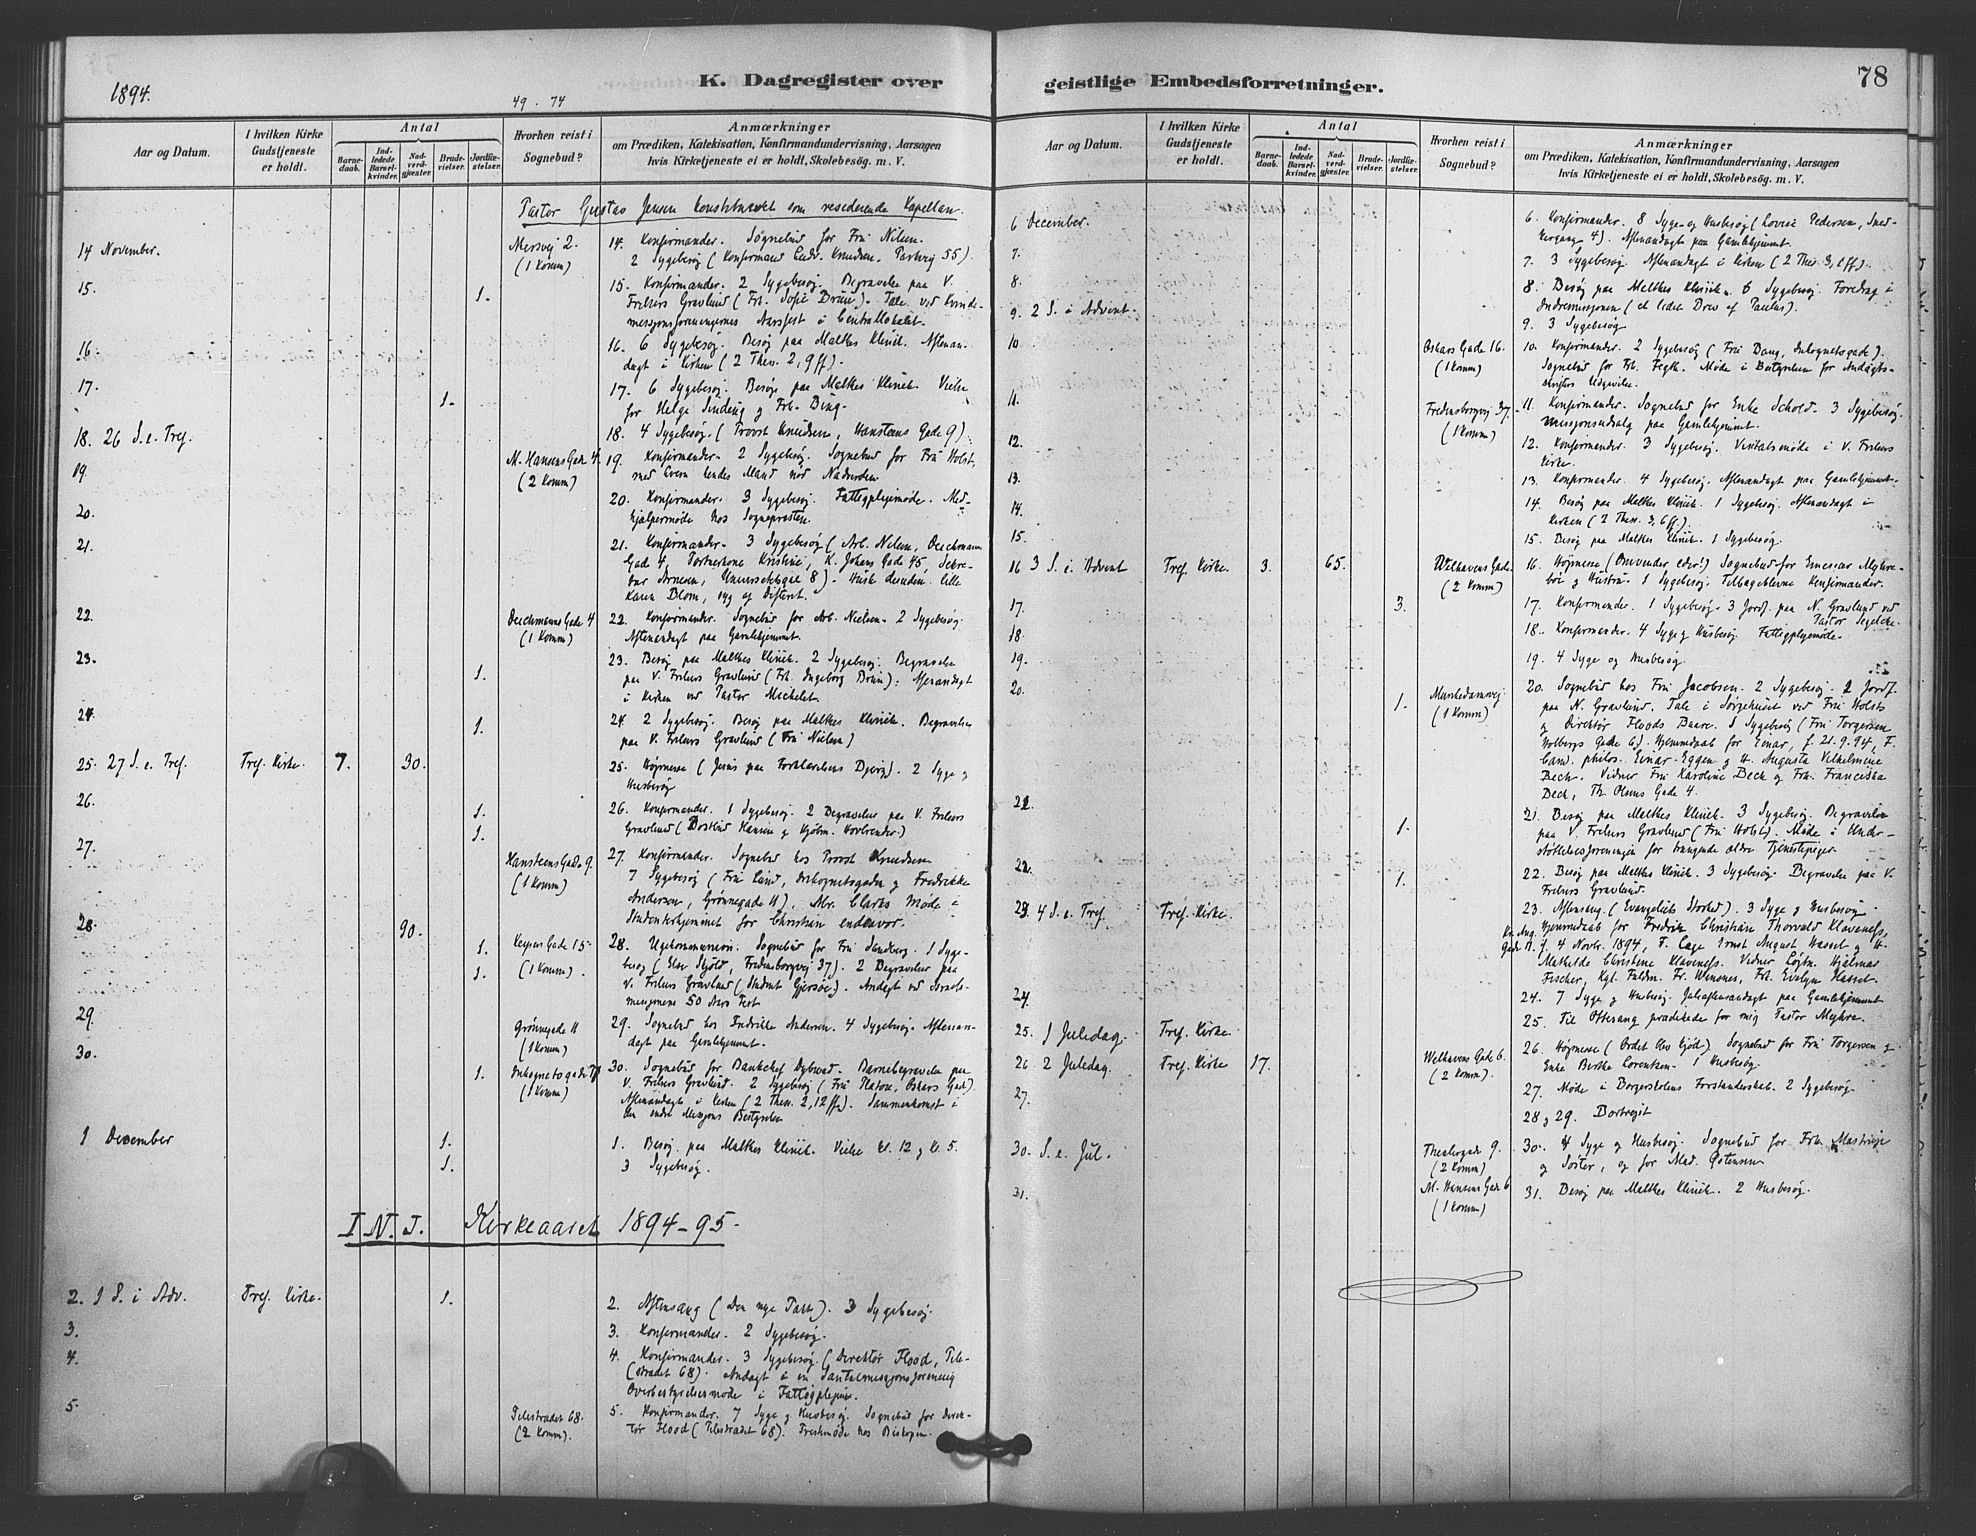 1894.
49 - 74
K. Dagregister over
Aar og Datum.
I hvilken Kirke Gudstjeneste er holdt.
Antal
Barnedaab.
Indledede Barselkvinder.
Nadverdgjæster.
Brudevielser.
Jordfæstelser.
Hvorhen reist i Sognebud?
Anmærkninger
om Prædiken, Katekisation, Konfirmandundervisning, Aarsagen
hvis Kirketjeneste ei er holdt, Skolebesøg. m. V.
Pastor Gustav Jensen konstitueret som residerende Kapellan.
14 November.
(1 Komm)
14. Konfirmander. Sognebud for Fru Nilsen.
2 Sygebesøg (Konfirmand Ludv. Knudsen, Parkvej 55).
15.
1.
15. Konfirmander. 2 Sygebesøg. Begravelse paa V.
Frelsers Gravlund (Frk. Sofie Bruun). Tale ved Kvinde-
missjonsforeningernes Aarsfest i Centrallokalet.
16.
16. 6 Sygebesøg. Besøg paa Malthes Klinik. Aftenan-
dagt i Kirken (2 Thess. 2, 9 ff).
17.
1.
17. 6 Sygebesøg. Besøg paa Malthes Klinik. Vielse
for Helge Sinding og Frk. Bing.
18. 26 S. e. Tref.
18. 4 Sygebesøg. (Provst Knudsen, Hansteens Gade 9).
19.
M. Hansens Gade 4.
(2 Komm)
19. Konfirmander. 2 Sygebesøg. Sognebud for Fru Holst,
20.
20. Konfirmander. 3 Sygebesøg. Fattigplejemøde. Med-
hjælpermøde hos Sognepresten.
21.
21. Konfirmander. 3 Sygebesøg (Arb. Nilsen, Deichmans
Gade 4, Portnerkone Kristine, K. Johans Gade 45,
Karen Blom, syg og
22.
Deichmans Gade 4
(1 Komm)
22. Konfirmander. Sognebud for Arb. Nielsen. 2 Sygebesøg.
Aftenandagt paa Gamlehjemmet.
23.
1.
23. Besøg paa Malthes Klinik. 2 Sygebesøg. Begravelse
paa V. Frelsers Gravlund (Frk. Ingeborg Bruun). Aftenandagt
i Kirken ved Pastor Michelet.
24.
1.
24. 2 Sygebesøg. Besøg paa Malthes Klinik. Begravelse
paa V. Frelsers Gravlund (Fru Nielsen)
25. 27 S. e. Tref.
Tref. Kirke.
7.
30.
25. Højmesse (Jesus paa Forklarelsens Bjerg). 2 Syge og
Husbesøg
26.
1.
1.
26. Konfirmander. 1 Sygebesøg. 2 Begravelser paa V. Frelsers
27.
Hansteens Gade 9.
(1 Komm)
27. Konfirmander. Sognebud hos Provst Knudsen
7 Sygebesøg (Fru Lund, Inkognitogaden og Fredrikke
Andersen, Grønnegade 11). Mr. Clarks Møde i
Studenterhjemmet for Christian endeavor.
28.
90.
1.
1.
Keysers Gade 15
(1 Komm)
28. Ugekommunion. Sognebud for Fru Sandberg. 1 Syge-
besøg (Else Skjold, Fredensborgvej 37). 2 Begravelser paa
V. Frelsers Gravlund (Student Gjersøe). Andagt ved Israels-
missjonens 50 Aars Fest
29.
Grønnegade 11
(1 Komm)
29. Sognebud hos Fredrikke Andersen. 4 Sygebesøg. Aftenan-
dagt paa Gamlehjemmet.
30.
1.
(1 Komm)
30. Sognebud for Bankchef Dybwad. Barnebegravelse paa
V. Frelsers Gravlund. 2 Sygebesøg (Fru Platou, Oskars Gade)
Aftenandagt i Kirken (2 Thess. 2, 12 ff). Sammenkomst i
Den indre Missjons Bestyrelse
1 December
1.
1.
1. Besøg paa Malthes Klinik. Vielse Kl. 12 og Kl. 5.
3 Sygebesøg.
I. N. J. Kirkeaaret 1894-95.
2. 1 S. i Adv.
Tref. Kirke.
1.
2. Aftensang (Den nye Pagt). 3 Sygebesøg.
3.
3. Konfirmander. 2 Sygebesøg.
4.
4. Konfirmander. 3 Sygebesøg. (Direktør Flood, Pile-
stradet 68). Andagt i en Santalmissjonsforening
Overbestyrelsesmøde i Fattigplejen.
5.
Pilestradet 68.
(2 Komm).
5. Konfirmander. 7 Syge og Husbesøg. Sognebud for Direk-
tør Flood (Pilestradet 68). Prestemøde hos Biskopen.
geistlige Embedsforretninger.
78
Aar og Datum.
I hvilken Kirke Gudstjeneste er holdt.
Antal
Barnedaab.
Indledede Barselkvinder.
Nadverdgjæster.
Brudevielser.
Jordfæstelser.
Hvorhen reist i Sognebud?
Anmærkninger
om Prædiken, Katekisation, Konfirmandundervisning, Aarsagen
hvis Kirketjeneste ei er holdt, Skolebesøg. m. V.
6 December.
6. Konfirmander. 8 Syge- og Husbesøg (Lovise Pedersen, Sned-
kergang 4). Aftenandagt paa Gamlehjemmet.
7.
7. 3 Sygebesøg. Aftenandagt i Kirken (2 Thess. 3, 1 ff).
8.
8. Besøg paa Malthes Klinik. 6 Sygebesøg. Foredrag i
Indremissionen (et lidet Brev af Paulus).
9. 2 S. i Advent.
9. 3 Sygebesøg
10.
Oskars Gade 16.
(1 Komm)
10. Konfirmander. 2 Sygebesøg (Fru Bang, Inkognitogade).
Sognebud for Frk. Fegth. Møde i Bestyrelsen for Andagts-
skrifters Udgivelse.
11.
Fredensborgvej 37.
(1 Komm)
11. Konfirmander. Sognebud for Enke Schold. 3 Sygebesøg.
Missjonsudsalg paa Gamlehjemmet.
12.
12. Konfirmander. 3 Sygebesøg. Visitatsmøde i V. Frelsers
Kirke.
13.
13. Konfirmander. 4 Sygebesøg. Aftenandagt paa Gamlehjemmet.
14.
14. Besøg paa Malthes Klinik. 1 Sygebesøg. Aftenandagt i
Kirken (2 Thess. 3, 6 ff).
15.
15. Besøg paa Malthes Klinik. 1 Sygebesøg.
16 3 S. i Advent
Tref. Kirke.
3.
65.
Welhavens Gade
(2 Komm)
16. Højmesse (Omvender eder!) Sognebud for Emissær Myhre-
boe og Hustru. 1 Sygebesøg. Tilbageblevne Konfirmander.
17.
3.
17. Konfirmander. 1 Sygebesøg. 3 Jordf. paa N. Gravlund ved
Pastor Segelcke.
18.
18. Konfirmander. 4 Syge og Husbesøg. Fattigplejemøde.
19.
19. 4 Syge og Husbesøg.
20.
1.
Munkedamsvej
(1 Komm)
20. Sognebud hos Fru Jacobsen. 2 Sygebesøg. 2 Jordf.
paa N. Gravlund. Tale i Sørgehuset ved Fru Holsts
og Direktør Floods Baare. 8 Sygebesøg (Fru Torgersen
Holbergs Gade 6). Hjemmedaab for Einar, f. 21.9.94, F.
Cand. philos. Einar Eggen og H. Augusta Vilhelmine
Beck. Vidner Fru Karoline Beck og Frk. Franciska
Beck, Th. Olsens Gade 4.
21.
1.
21. Besøg paa Malthes Klinik. 3 Sygebesøg. Begravelse
paa V. Frelsers Gravlund (Fru Holst). Møde i Under-
støttelsesforeningen for trængende ældre Tjenestepiger
22.
1.
22. Besøg paa Malthes Klinik. 3 Sygebesøg. Begravelse paa V.
Frelsers Gravlund.
23. 4 S. e. Tref
Tref. Kirke.
23. Aftensang. (Evangeliets Storhed). 3 Syge og Husbesøg.
Hjemmedaab for Fredrik Christian Thorvald Klaveness,
f. 4 Novbr. 1894, F. Cage Ernst August Hassel og H.
Mathilde Christine Klaveness. Vidner Løjtn. Hjalmar
Fischer, Kgl. Fuldm. Fr. Winsnes, Frk. Evelyn Hassel.
24.
24. 7 Syge og Husbesøg. Juleaftensandagt paa Gamlehjemmet
25. 1 Juledag.
Tref. Kirke.
25. Til Ottesang prædikede for mig Pastor Myhre.
26 2 Juledag.
Tref. Kirke
17.
Welhavens Gade 6.
(2 Komm).
26. Højmesse (Ordet blev Kjød). Sognebud for Fru Torgersen og
Enke Berthe Lorentzen. 1 Husbesøg.
27.
27. Møde i Borgerskolens Forstanderskab. 2 Sygebesøg.
28 og 29. Bortrejst
30. S. e. Jul.
9.
(2 Komm)
30. 4 Syge og Husbesøg. Sognebud for Frk.
og Søster, og for Mad.
31.
M. Hansens Gade 6
(1 Komm)
31. Besøg paa Malthes Klinik. 2 Husbesøg.